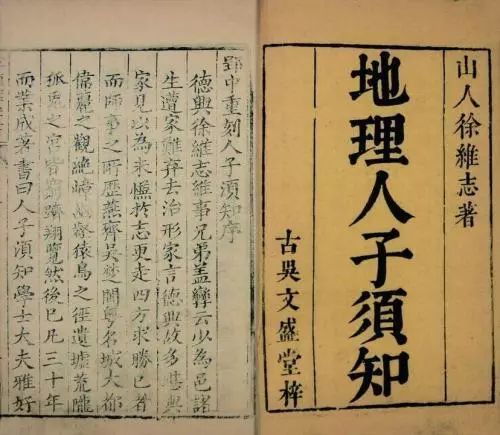 山人徐維志著
地理人子須知
古吳文盛堂梓
郢中重刻人子須知序
德興徐維志維事兄弟盖孿云以為邑諸
生遭家難弃去治形家言德興故多堪輿
家見以為未慊於志更走四方求勝已者
而師事之所歷燕齊吳楚閩粵名城大都
偉麗之觀絕嶂猿鳥之徑遺墟荒隴
狐兔之宮皆窮躋翔覽然後已凡三十年
而業成著書曰人子須知學士大夫雅好